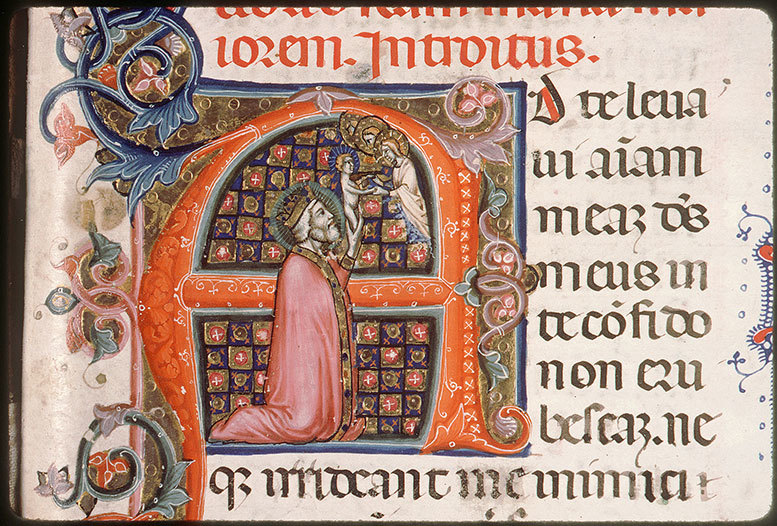 iorem. Introitus.
A d te leua
ui aīam
meaꝫ dēs
meus in
te cōfido
non eru
bescaꝫ. ne
qꝫ irrideant me inimici